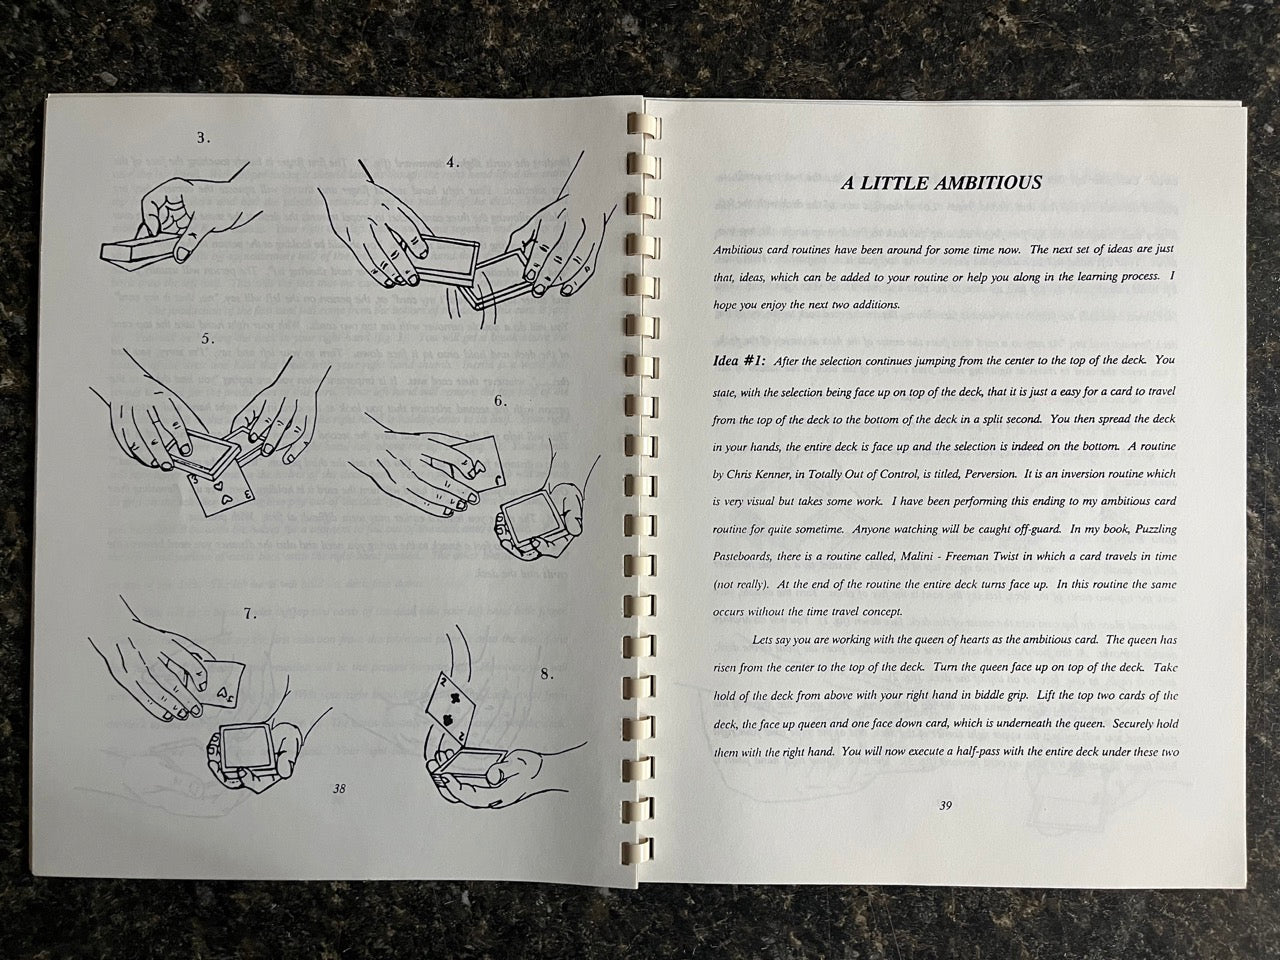 3.
4.
5.
6.
7.
8.
38
A LITTLE AMBITIOUS
Ambitious card routines have been around for some time now. The next set of ideas are just
that, ideas, which can be added to your routine or help you along in the learning process. I
hope you enjoy the next two additions.
Idea #1: After the selection continues jumping from the center to the top of the deck. You
state, with the selection being face up on top of the deck, that it is just a easy for a card to travel
from the top of the deck to the bottom of the deck in a split second. You then spread the deck
in your hands, the entire deck is face up and the selection is indeed on the bottom. A routine
by Chris Kenner, in Totally Out of Control, is titled, Perversion. It is an inversion routine which
is very visual but takes some work. I have been performing this ending to my ambitious card
routine for quite sometime. Anyone watching will be caught off-guard. In my book, Puzzling
Pasteboards, there is a routine called, Malini - Freeman Twist in which a card travels in time
(not really). At the end of the routine the entire deck turns face up. In this routine the same
occurs without the time travel concept.
Lets say you are working with the queen of hearts as the ambitious card. The queen has
risen from the center to the top of the deck. Turn the queen face up on top of the deck. Take
hold of the deck from above with your right hand in biddle grip. Lift the top two cards of the
deck, the face up queen and one face down card, which is underneath the queen. Securely hold
them with the right hand. You will now execute a half-pass with the entire deck under these two
39